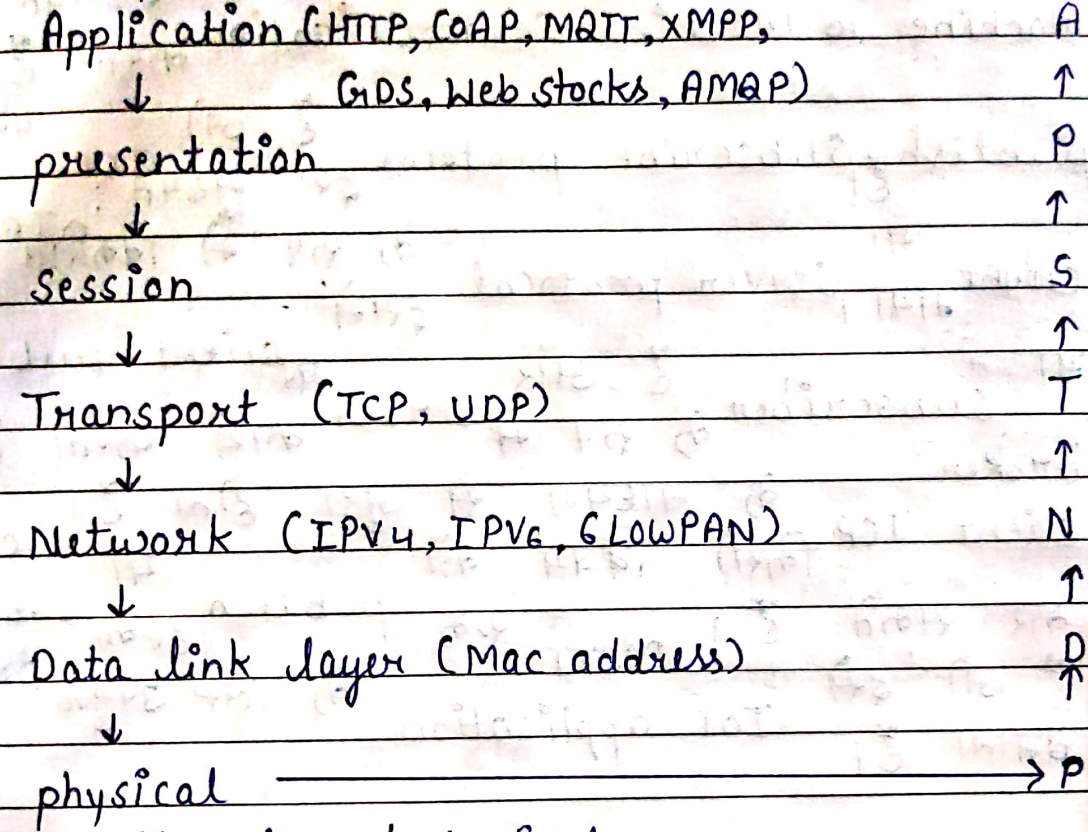 Application (HTTP, COAP, MQTT, XMPP, A
↓ GDS, Web stocks, AMQP) ↑
presentation P
↓ ↑
Session S
↓ ↑
Transport (TCP, UDP) T
↓ ↑
Network (IPV4, IPV6, 6LOWPAN) N
↓ ↑
Data link layer (Mac address) D
↓ ↑
physical → P